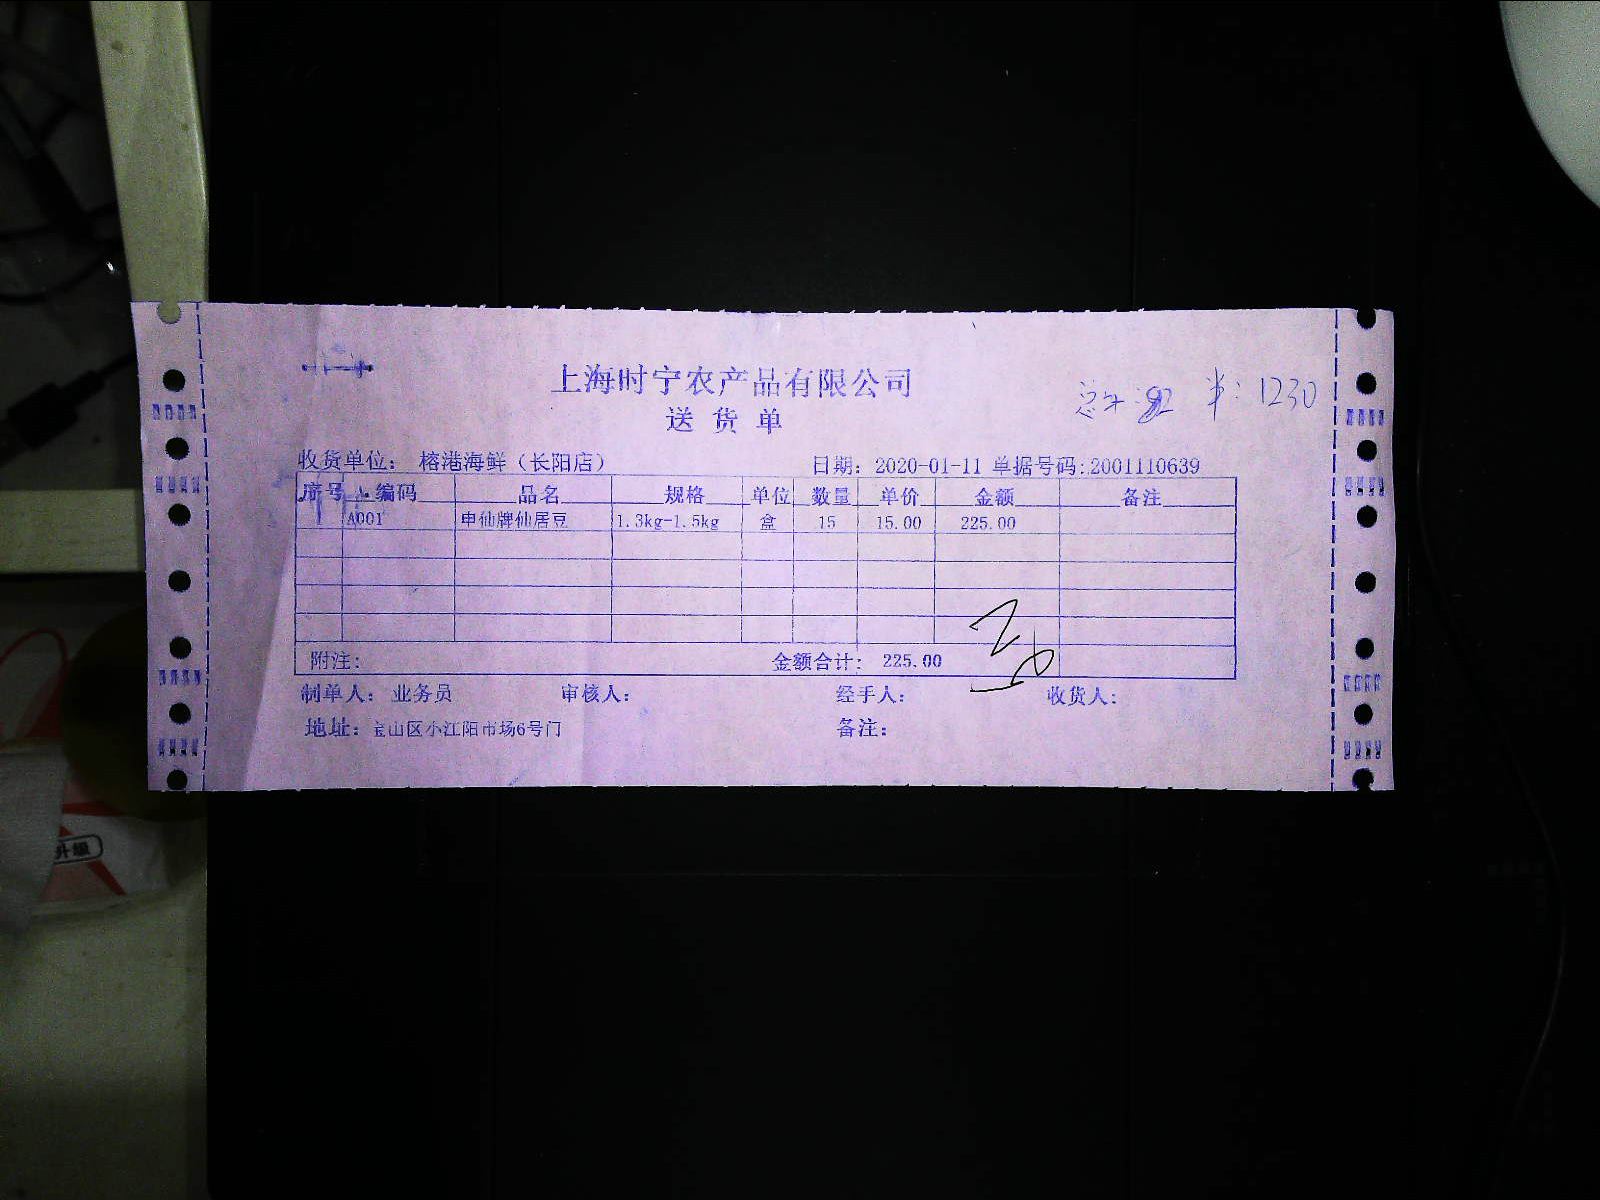 上海时宁农产品有限公司
送货单
1230
收货单位： 榕港海鲜（长阳店） 日期：2020-01-11 单据号码:2001110639
序号 编码 品名 规格 单位 数量 单价 金额 备注
A001 申仙牌仙居豆 1.3kg-1.5kg 盒 15 15.00 225.00
附注： 金额合计： 225.00
制单人： 业务员 审核人： 经手人： 收货人：
地址：宝山区小江阳市场6号门 备注：
升级